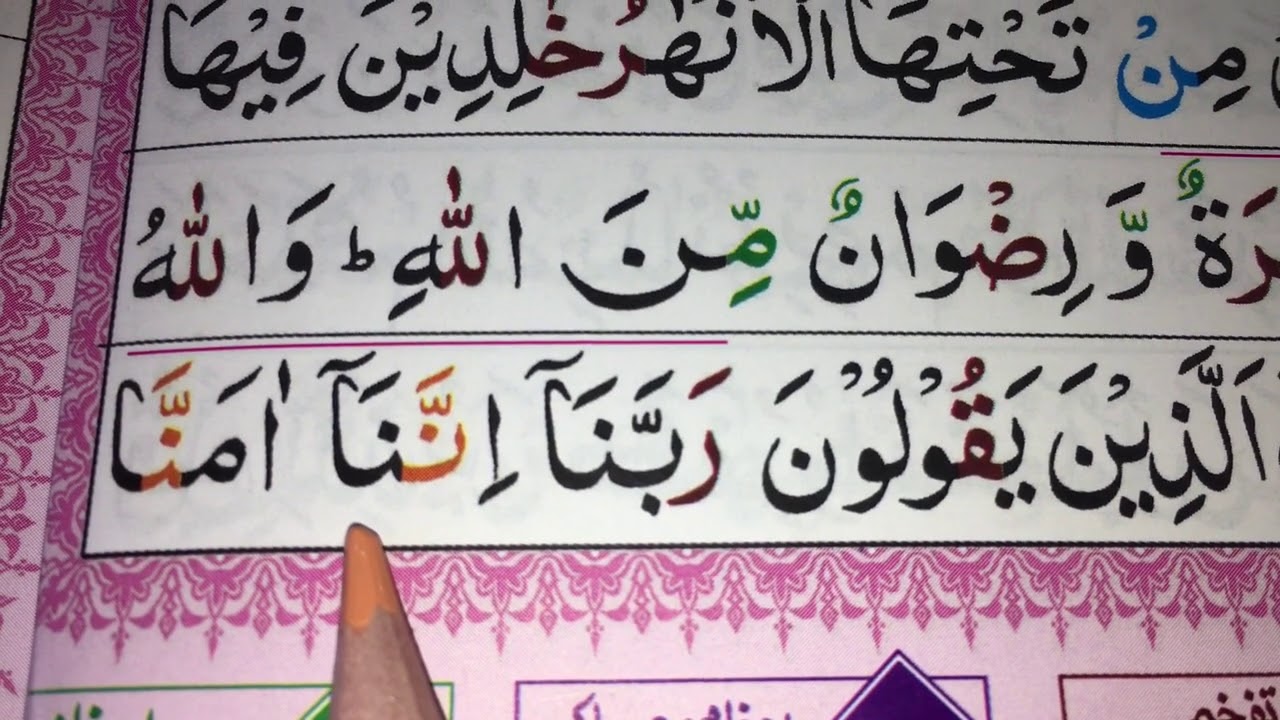 مِنْ تَحْتِهَا الْاَنْهٰرُ خٰلِدِيْنَ فِيْهَا
رَةٌ وَّ رِضْوَانٌ مِّنَ اللّٰهِ ؕ وَاللّٰهُ
اَلَّذِيْنَ يَقُوْلُوْنَ رَبَّنَاۤ اِنَّنَاۤ اٰمَنَّا
تفخم